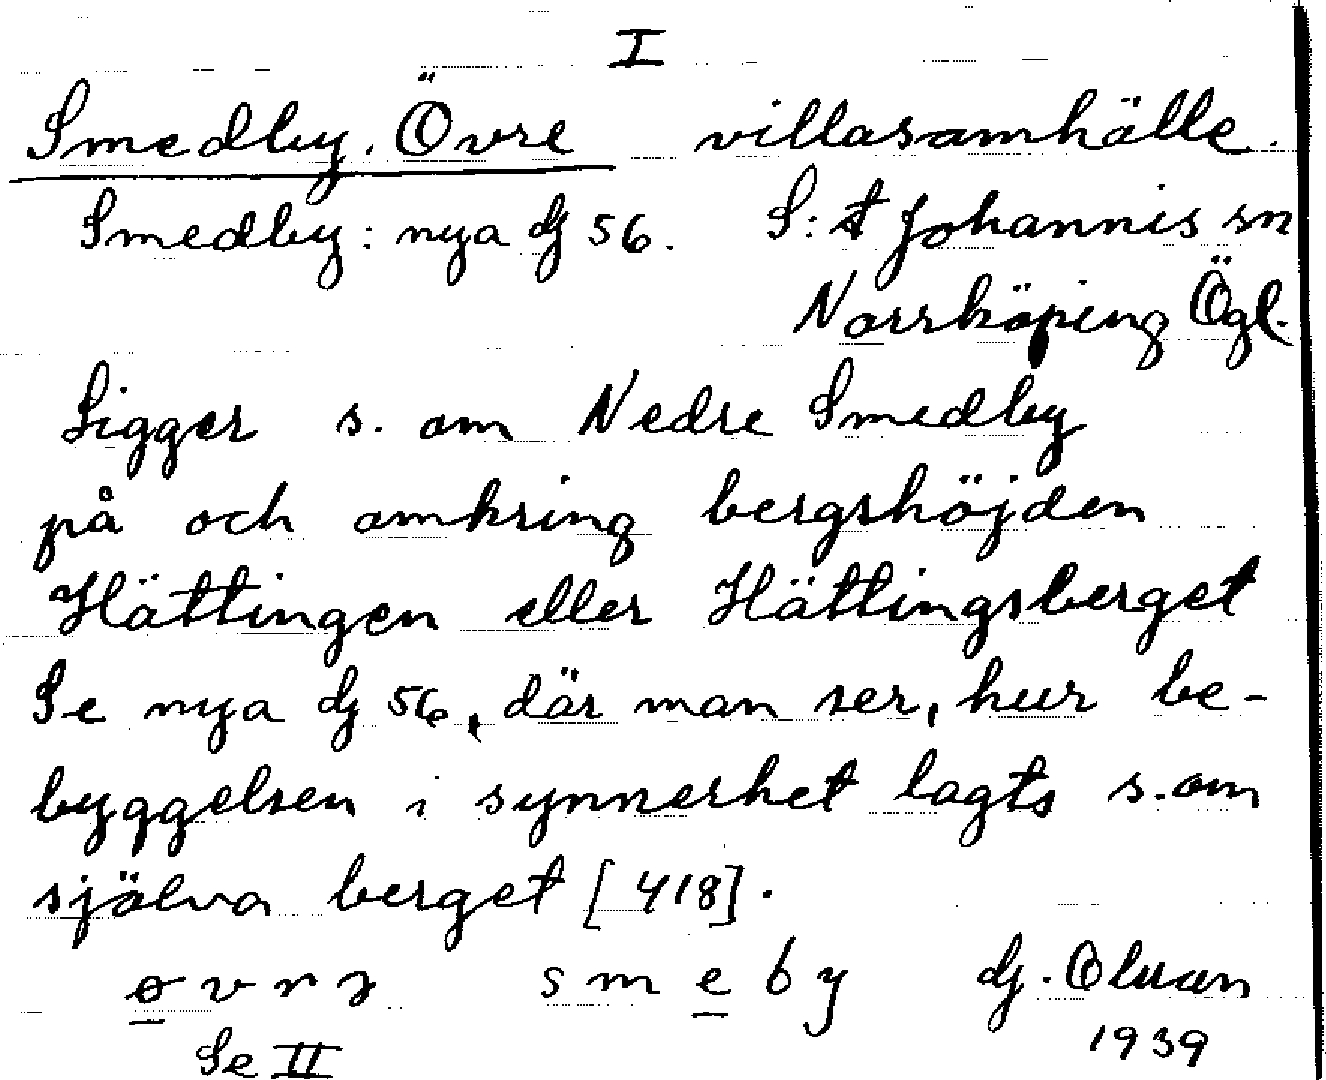 I
Smedby, Övre villasamhälle.
Smedby: nya dj 56. S:t Johannis sn
Norrköping Ögl.
Ligger s. om Nedre Smedby
på och omkring bergshöjden
Hättingen eller Hättingsberget
Se nya dj 56, där man ser, hur be-
byggelsen i synnerhet lagts s. om
själva berget [418].
ɵvrɜ smeby dj. Olsson
Se II 1939